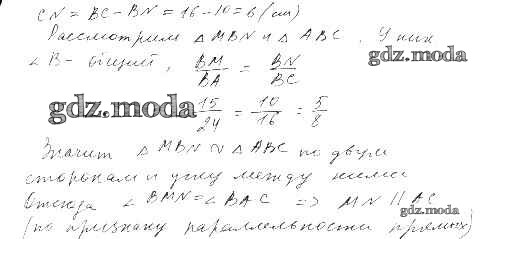 CN = BC - BN = 16 - 10 = 6 (см)
Рассмотрим △ MBN и △ ABC. У них
∠ B - общий, BM/BA = BN/BC
gdz.moda
15/24 = 10/16 = 5/8
gdz.moda
Значит △ MBN ∾ △ ABC по двум
сторонам и углу между ними
Отсюда ∠ BMN = ∠ BAC => MN || AC
gdz.moda
(по признаку параллельности прямых)